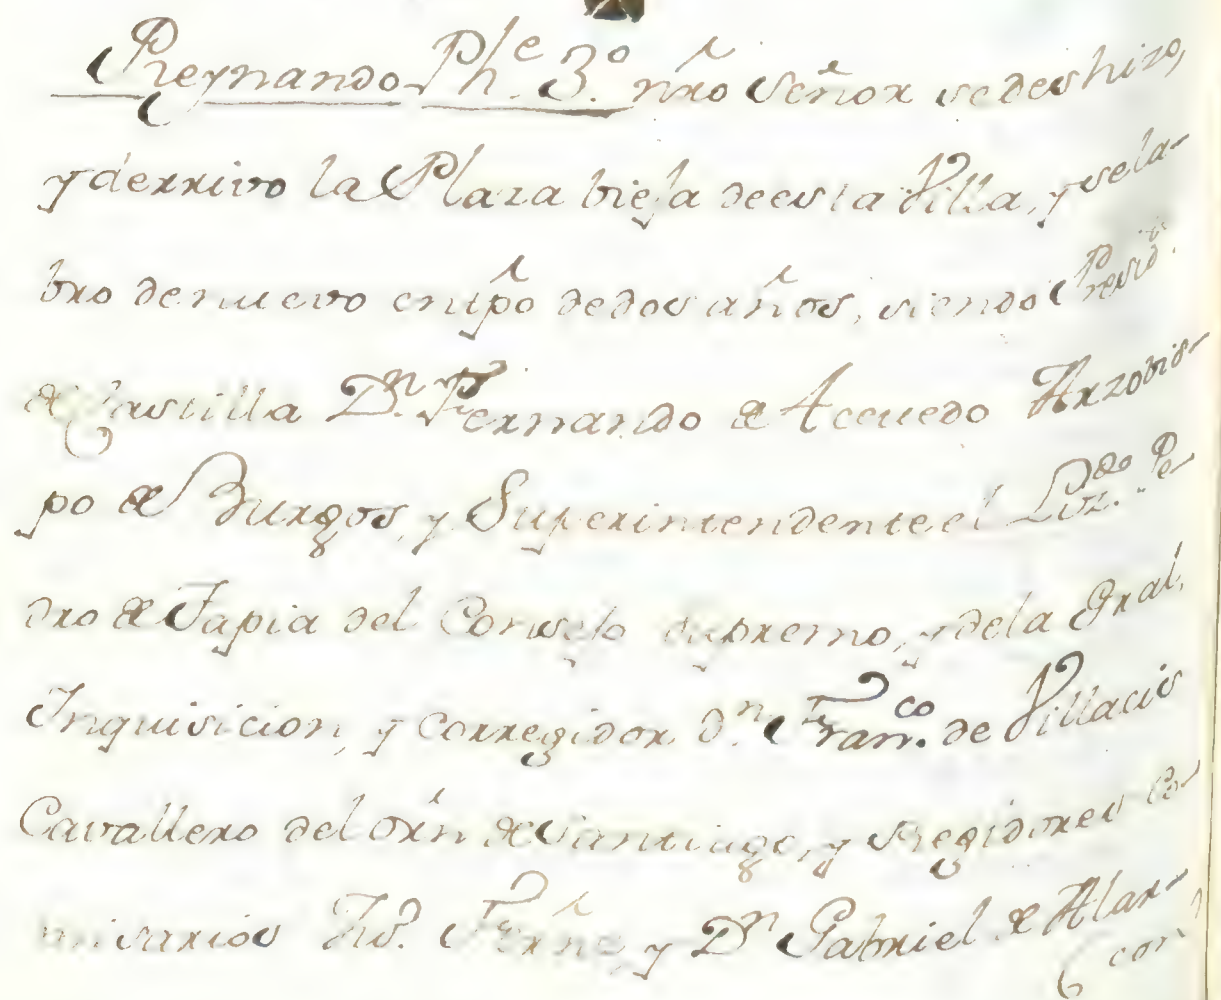 Reynando Phe. 3.º nr̃o Señor se deshizo,
y derrivo la Plaza bieja de esta Villa, y se la-
bro de nuevo en tp̃o de dos años, siendo Presid.e
de Castilla D.n Fernando de Acevedo Arzobis-
po de Burgos, y Superintendente el Liz.do Pe-
dro de Tapia del Consejo supremo, y de la Gral,
Inquisicion, y Corregidor D.n Fran.co de Villacis
Cavallero del orñ de Santiago, y Regidores Co-
misarios Ju.º Frñz y D.n Gabriel de Alar-
con